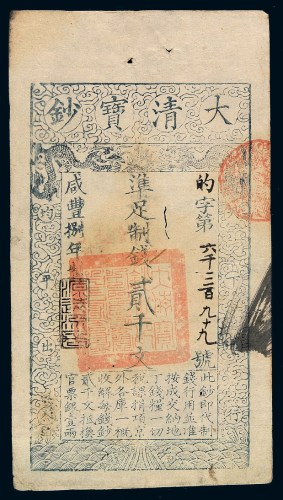 大清寶鈔
的字第六千三百九十九號
準足制錢貳千文
咸豐捌年
此鈔即代制
錢行用並准
按成交納地
丁錢糧一切
稅課捐項京
外各庫一概
收解每錢鈔
貳千文抵換
官票銀壹兩
均平出入